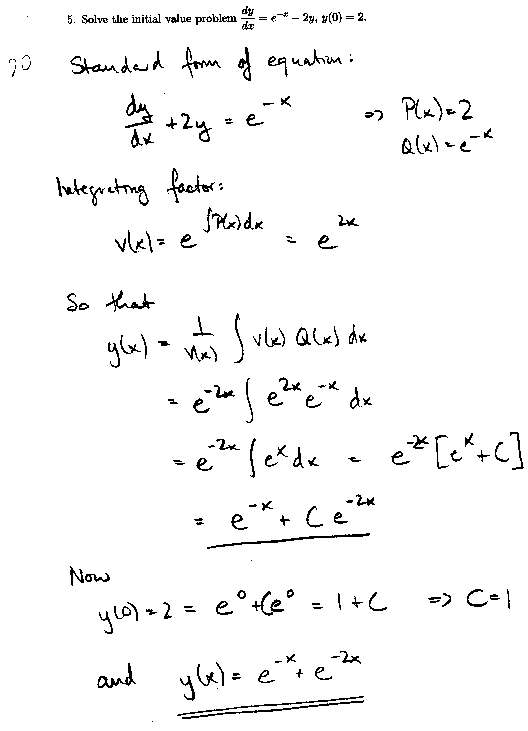 5. Solve the initial value problem dy/dx = e^{-x} - 2y, y(0) = 2.
20 Standard form of equation:
dy/dx + 2y = e^{-x} => P(x)=2
Q(x)=e^{-x}
Integrating factor:
v(x) = e^{∫P(x)dx} = e^{2x}
So that
y(x) = 1/v(x) ∫ v(x) Q(x) dx
= e^{-2x} ∫ e^{2x} e^{-x} dx
= e^{-2x} ∫ e^x dx = e^{-2x} [e^x + C]
= e^{-x} + C e^{-2x}
Now
y(0) = 2 = e^0 + Ce^0 = 1 + C => C=1
and y(x) = e^{-x} + e^{-2x}